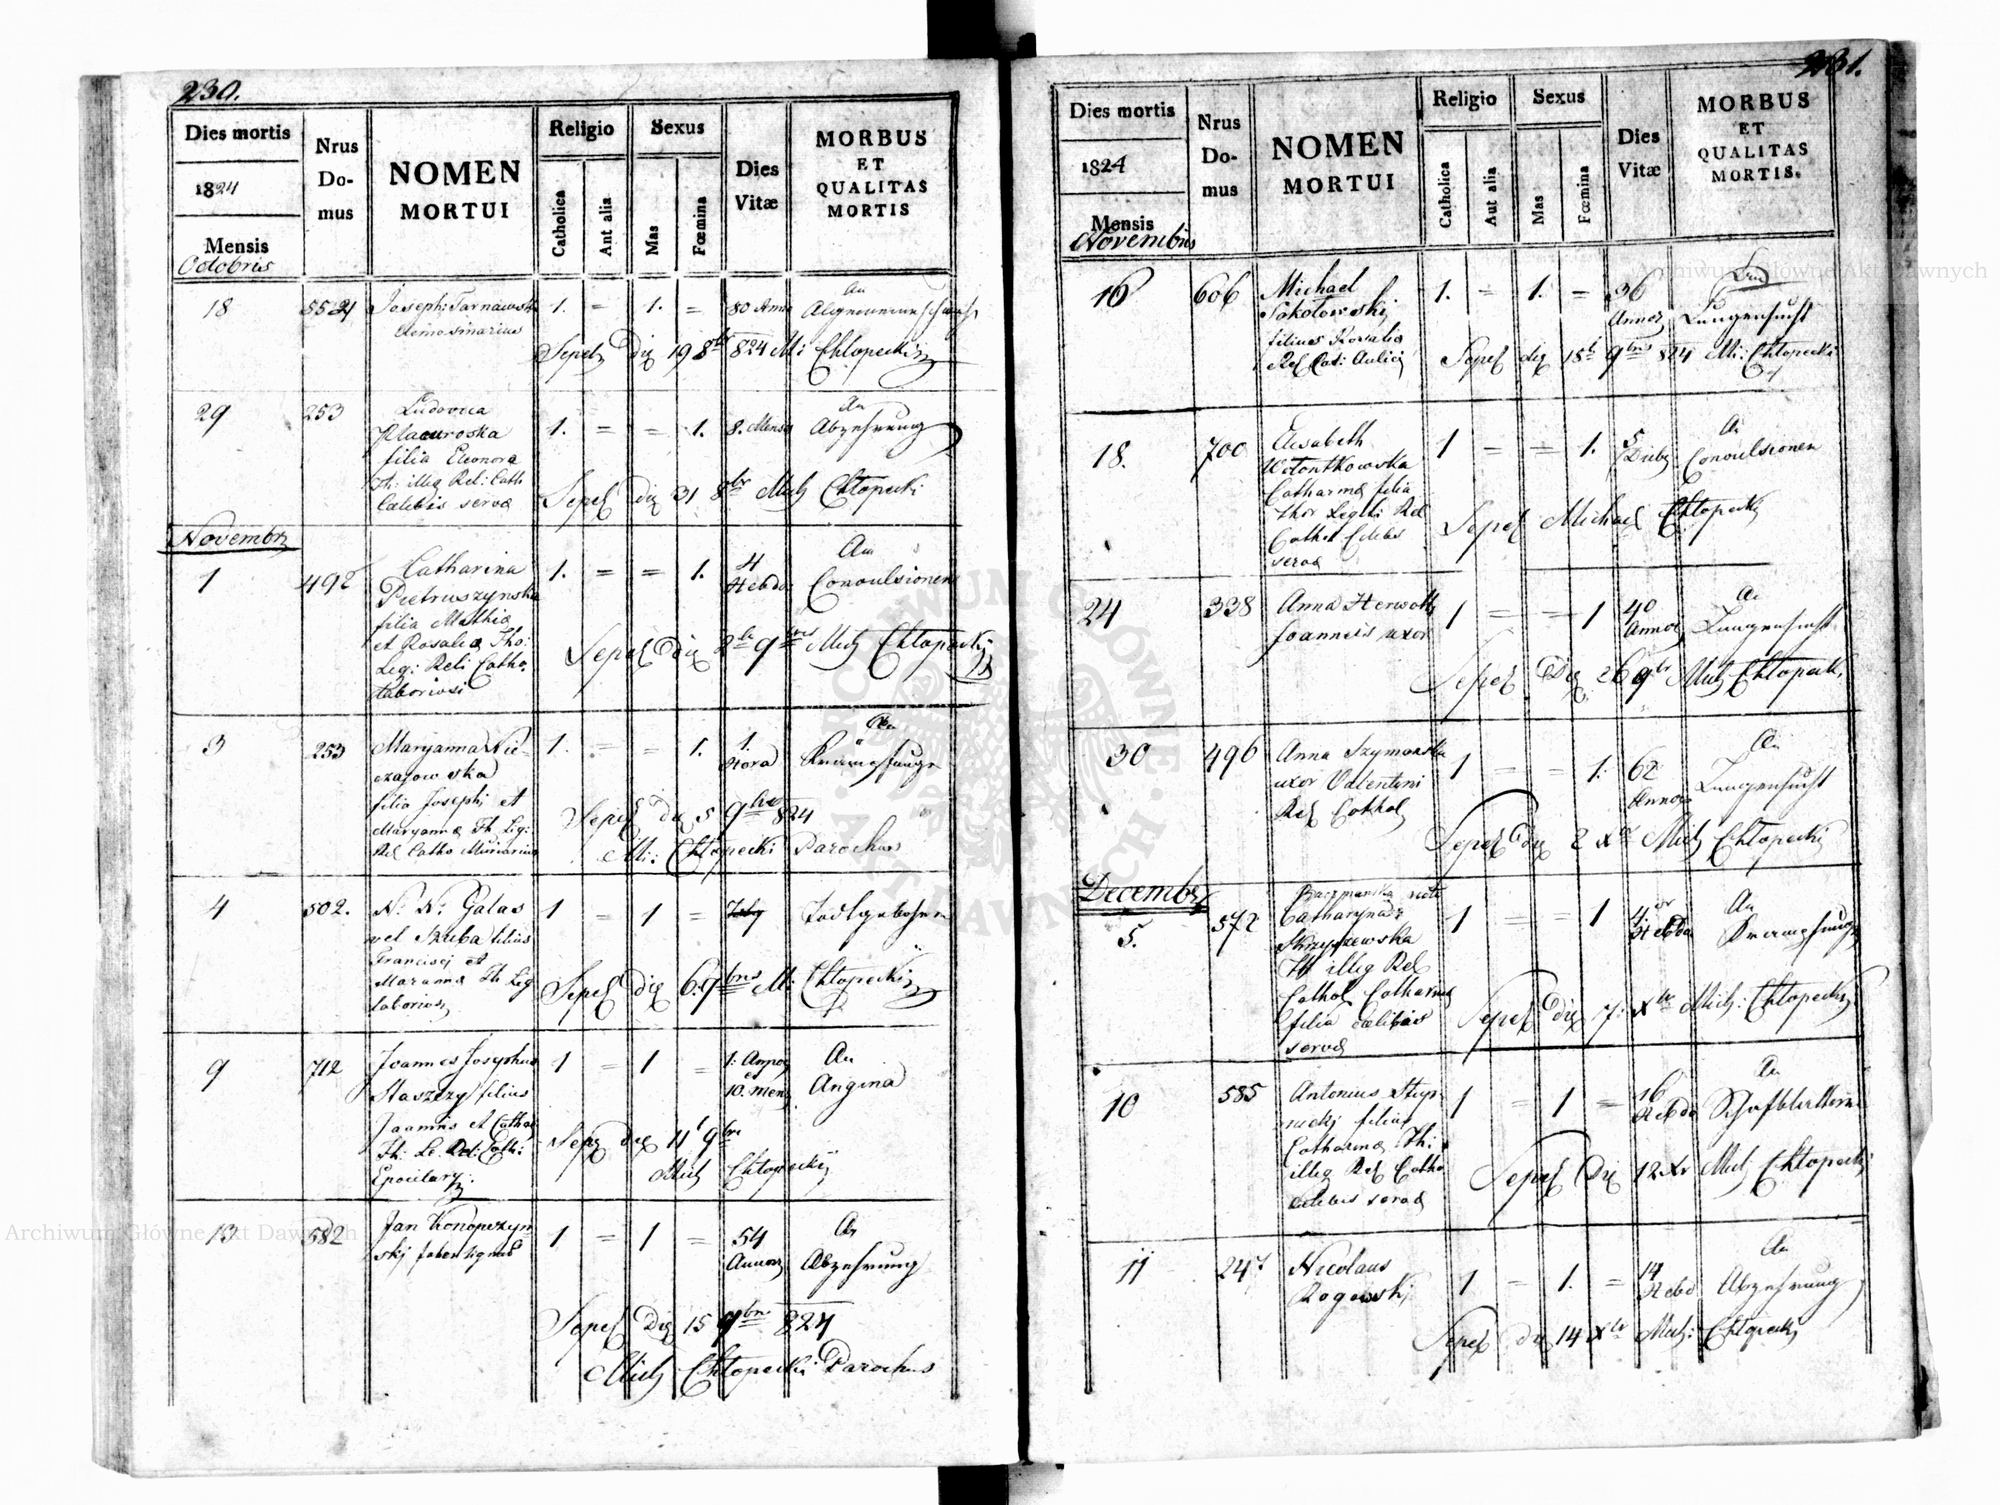 230.
Dies mortis
1824
Mensis
Octobris
Nrus Do- mus
NOMEN MORTUI
Religio
Catholica
Aut alia
Sexus
Mas
Fœmina
Dies Vitæ
MORBUS ET QUALITAS MORTIS
18 552 Joseph: Tarnawski 1. = 1. = 80 Anno An
Elemosinarius
Sepel die 19 8br 824 M: Chłopecki
29 253 Ludovica 1. = = 1. 8. Mens An Abzehrung
filia Eleonora
Th: illeg Rel: Cath
Cælibis servæ
Sepel die 31 8br Mich Chłopecki
Novembr
1 492 Catharina 1. = = 1. 4 Hebdo: An Convulsionen
Pietruszynska
filia Mathiæ
et Rosaliæ Tho:
Leg: Reli Catho.
Laboriosi
Sepel die 2 9bris Mich Chłopecki
3 253 Maryanna Nie- 1. = = 1. 1. Hora An
czajowska
filia Josephi et
Maryannæ Th Leg:
Rel Catho Murarius
Sepel die 5 9bris 824
Mi: Chłopecki Parochus
4 502. N: N: Galas 1 = 1 = Todtgebohren
vel Szuba filius
Francisci et
Marianna Th Leg
laborios
Sepel die 6. 9bris M: Chłopecki
9 712 Joannes Josephus 1 = 1 = 1: Annor et 10. mens An Angina
Staszezy filius
Joannis et Cathar
Th: Le. Rel: Cath:
Sepe die 11 9br
Mich Chłopecki
13 582 Jan Konopczyn- 1 = 1 = 54 Annor An Abzehrung
skj
Sepel Die 15 9br 824
Mich Chłopecki Parochus
231.
Dies mortis
1824
Mensis
Novembris
Nrus Do- mus
NOMEN MORTUI
Religio
Catholica
Aut alia
Sexus
Mas
Fœmina
Dies Vitæ
MORBUS ET QUALITAS MORTIS.
16 606 Michael 1. = 1. = 36 Annor Lungensucht
Sokołowski
filius Rosalia
Rel Cat:
Sepel die 18 9bris 824 Mi: Chłopecki
18. 700 Elisabeth 1 = = 1. 5 An Convulsionen
Catharinæ filia
Thor Legtti Rel
Cathol Celebs
servæ
Sepel Michael Chłopecki
24 338 Anna 1 = = 1 40 Annor An Lungensucht
Joannis uxor
Sepel Die 26 9br Mich Chłopecki
30 496 Anna Szymanska 1 = = 1. 62 Annor An Lungensucht
uxor Valentini
Rel Cathol
Sepel die 2 Xbr Mich Chłopecki
Decembr
5. 572 Catharyna 1 = = 1 4. Hebdo An
Th illeg Rel
Cathol Catharinæ
filia cælibis
servæ
Sepel die 7: Xbr Mich: Chłopecki
10 585 Antonius Stup- 1 = 1 = 16 Hebdo An Schafblattern
nickj filius
Catharinæ Th:
illeg Rel Catho
celebis servæ
Sepel Die 12 Xr Mich Chłopecki
11 247 Nicolaus 1 = 1. = 14 Hebd. An Abzehrung
Rogowski
Sepel die 14 Xbr Mich: Chłopecki
Archiwum Główne Akt Dawnych
ARCHIWUM GŁÓWNE AKT DAWNYCH
Archiwum Główne Akt Dawnych